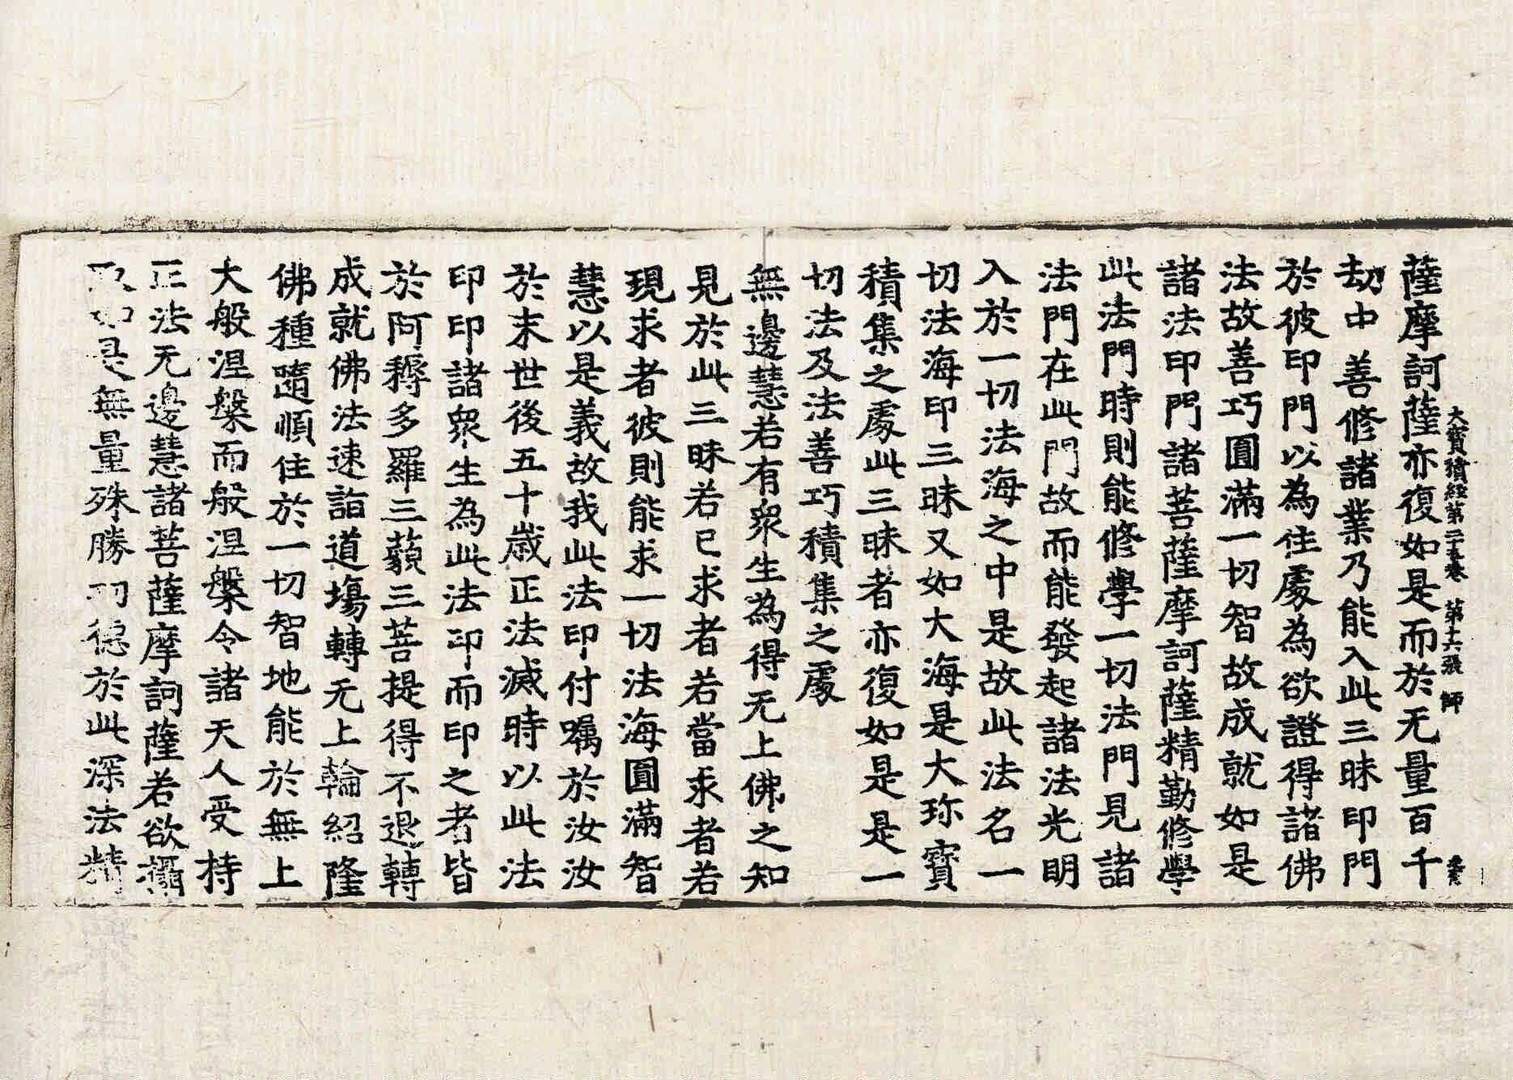 大寶積經第二十五卷 第十六張 師
薩摩訶薩亦復如是而於无量百千
劫中善修諸業乃能入此三昧印門
於彼印門以為住處為欲證得諸佛
法故善巧圓滿一切智故成就如是
諸法印門諸菩薩摩訶薩精勤修學
此法門時則能修學一切法門見諸
法門在此門故而能發起諸法光明
入於一切法海之中是故此法名一
切法海印三昧又如大海是大珎寶
積集之處此三昧者亦復如是是一
切法及法善巧積集之處
無邊慧若有衆生為得无上佛之知
見於此三昧若已求者若當求者若
現求者彼則能求一切法海圓滿智
慧以是義故我此法印付囑於汝汝
於末世後五十歲正法滅時以此法
印印諸衆生為此法印而印之者皆
於阿耨多羅三藐三菩提得不退轉
成就佛法速詣道場轉无上輪紹隆
佛種隨順住於一切智地能於無上
大般涅槃而般涅槃令諸天人受持
正法无邊慧諸菩薩摩訶薩若欲攝
取如是無量殊勝功德於此深法精